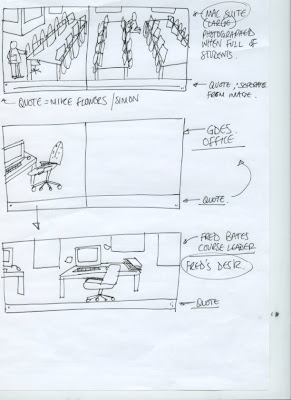 MAC SUITE
(LARGE)
PHOTOGRAPHED
WHEN FULL OF
STUDENTS.
QUOTE, SEPERATE
FROM IMAGE.
QUOTE = MIKE FLOWERS / SIMON
GDES.
OFFICE
QUOTE
FRED BATES
COURSE LEADER
FRED'S DESK.
QUOTE